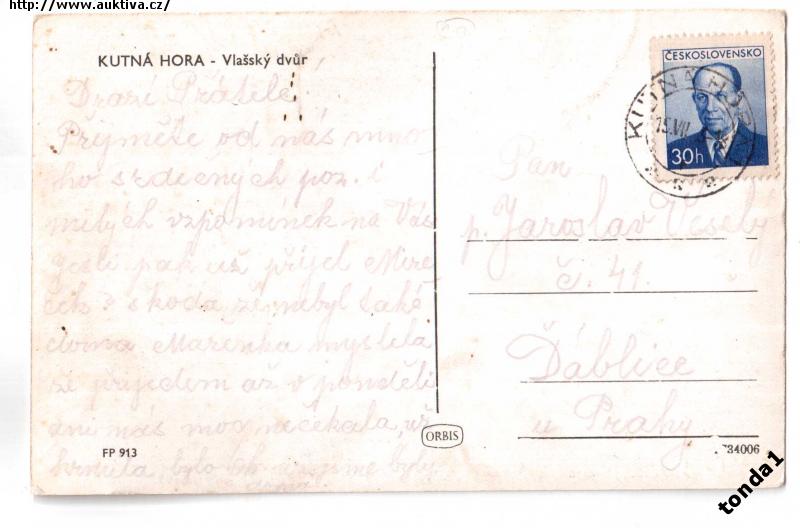 http://www.auktiva.cz/
KUTNÁ HORA - Vlašský dvůr
Drazí Přátelé!
Přijměte od nás mno
ho srdečných poz. i
milých vzpomínek na Vás
Jestli pak už přijel Mire
ček? škoda, že nebyl také
doma Mařenka myslela
že přijedem až v pondělí
ani nás moc nečekala, už
bylo
FP 913
ORBIS
ČESKOSLOVENSKO
30h
KUTNÁ HORA
15.VII
Pan
p. Jaroslav Veselý
č. 41.
Ďáblice
u Prahy
34006
tonda1